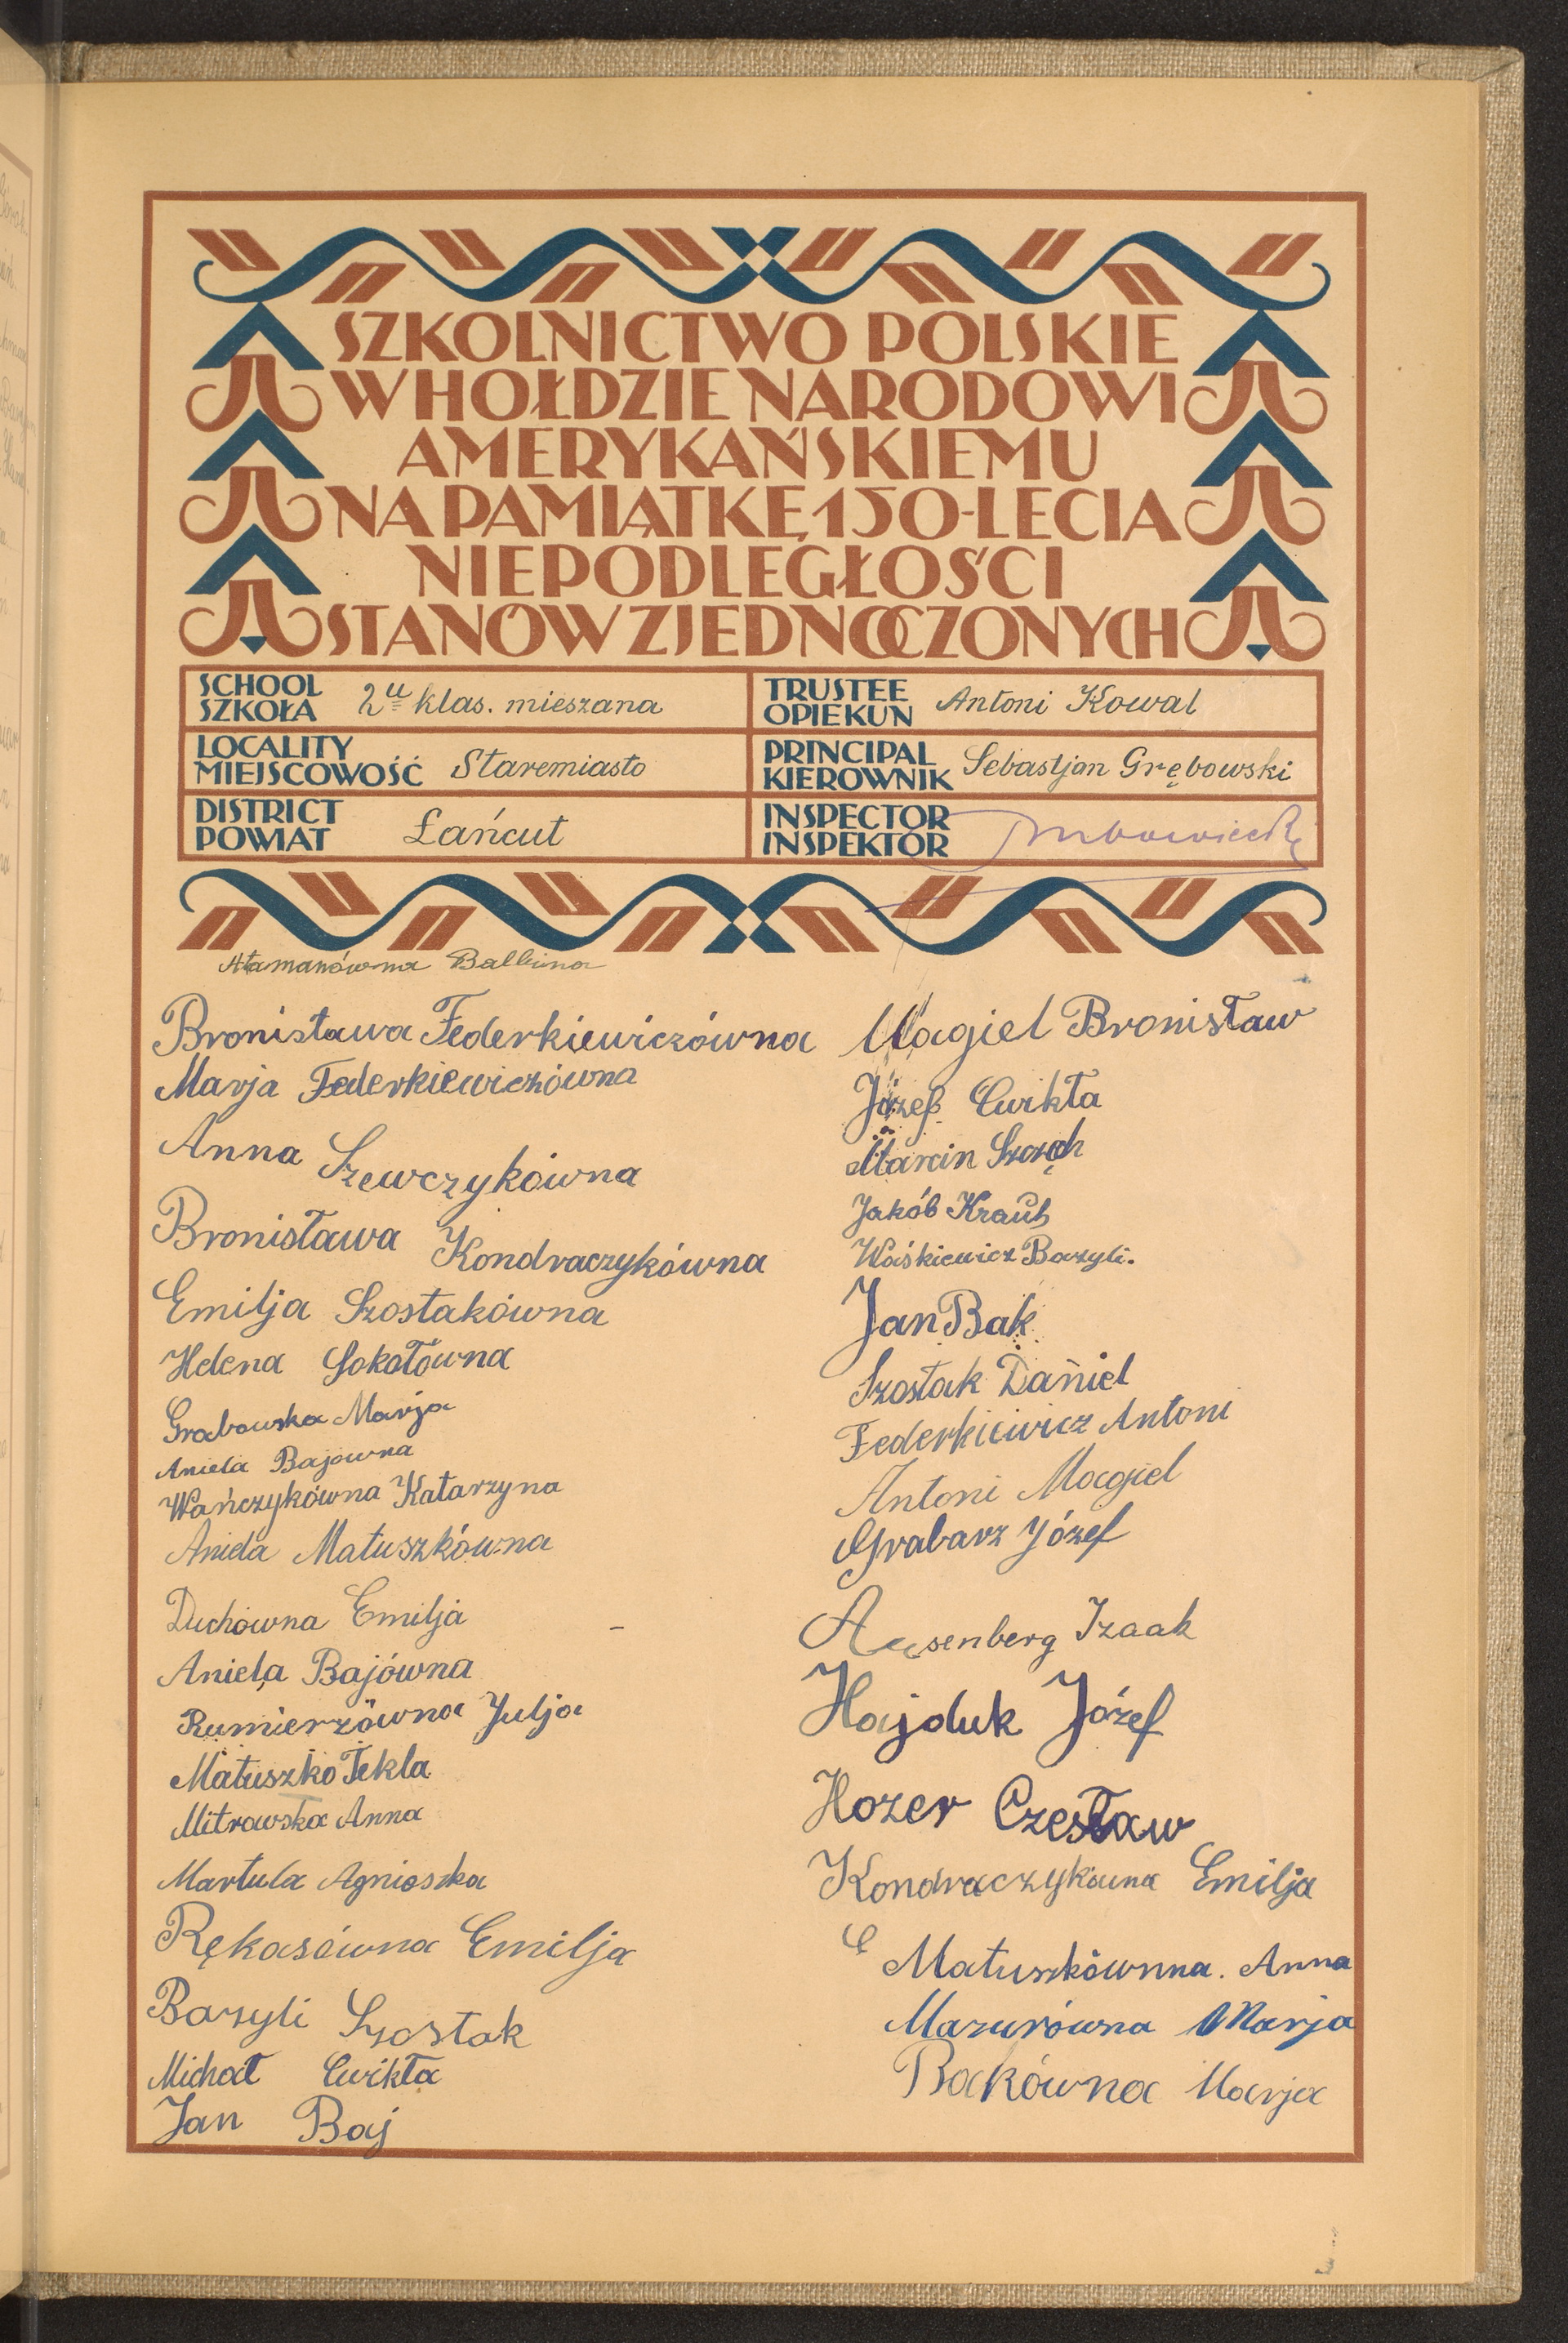 SZKOLNICTWO POLSKIE
W HOŁDZIE NARODOWI
AMERYKAŃSKIEMU
NA PAMIĄTKĘ 150-LECIA
NIEPODLEGŁOŚCI
STANÓW ZJEDNOCZONYCH
SCHOOL
SZKOŁA
2u klas. mieszana
TRUSTEE
OPIEKUN
Antoni Kowal
LOCALITY
MIEJSCOWOŚĆ
Staremiasto
PRINCIPAL
KIEROWNIK
Sebastjan Grębowski
DISTRICT
POWIAT
Łańcut
INSPECTOR
INSPEKTOR
Atamanówna Balbina
Bronisława Federkiewiczówna
Marja Federkiewiczówna
Anna Szewczykówna
Bronisława Kondraczykówna
Emilja Szostakówna
Helena Sokołówna
Grabowska Marja
Aniela Bajówna
Wańczykówna Katarzyna
Aniela Matuszkówna
Duchówna Emilja
Aniela Bajówna
Rumierzówna Julja
Matuszko Tekla
Mitrowska Anna
Martula Agnieszka
Rękasówna Emilja
Bazyli Szostak
Michał Ćwikła
Jan Baj
Magiel Bronisław
Józef Ćwikła
Marcin
Jakób
Waśkiewicz Bazyli.
Jan Bak
Szostak Daniel
Federkiewicz Antoni
Antoni Magiel
Grabarz Józef
Izaak
Hajduk Józef
Hozer Czesław
Kondraczykówna Emilja
Matuszkównna. Anna
Mazurówna Marja
Bakówna Marja